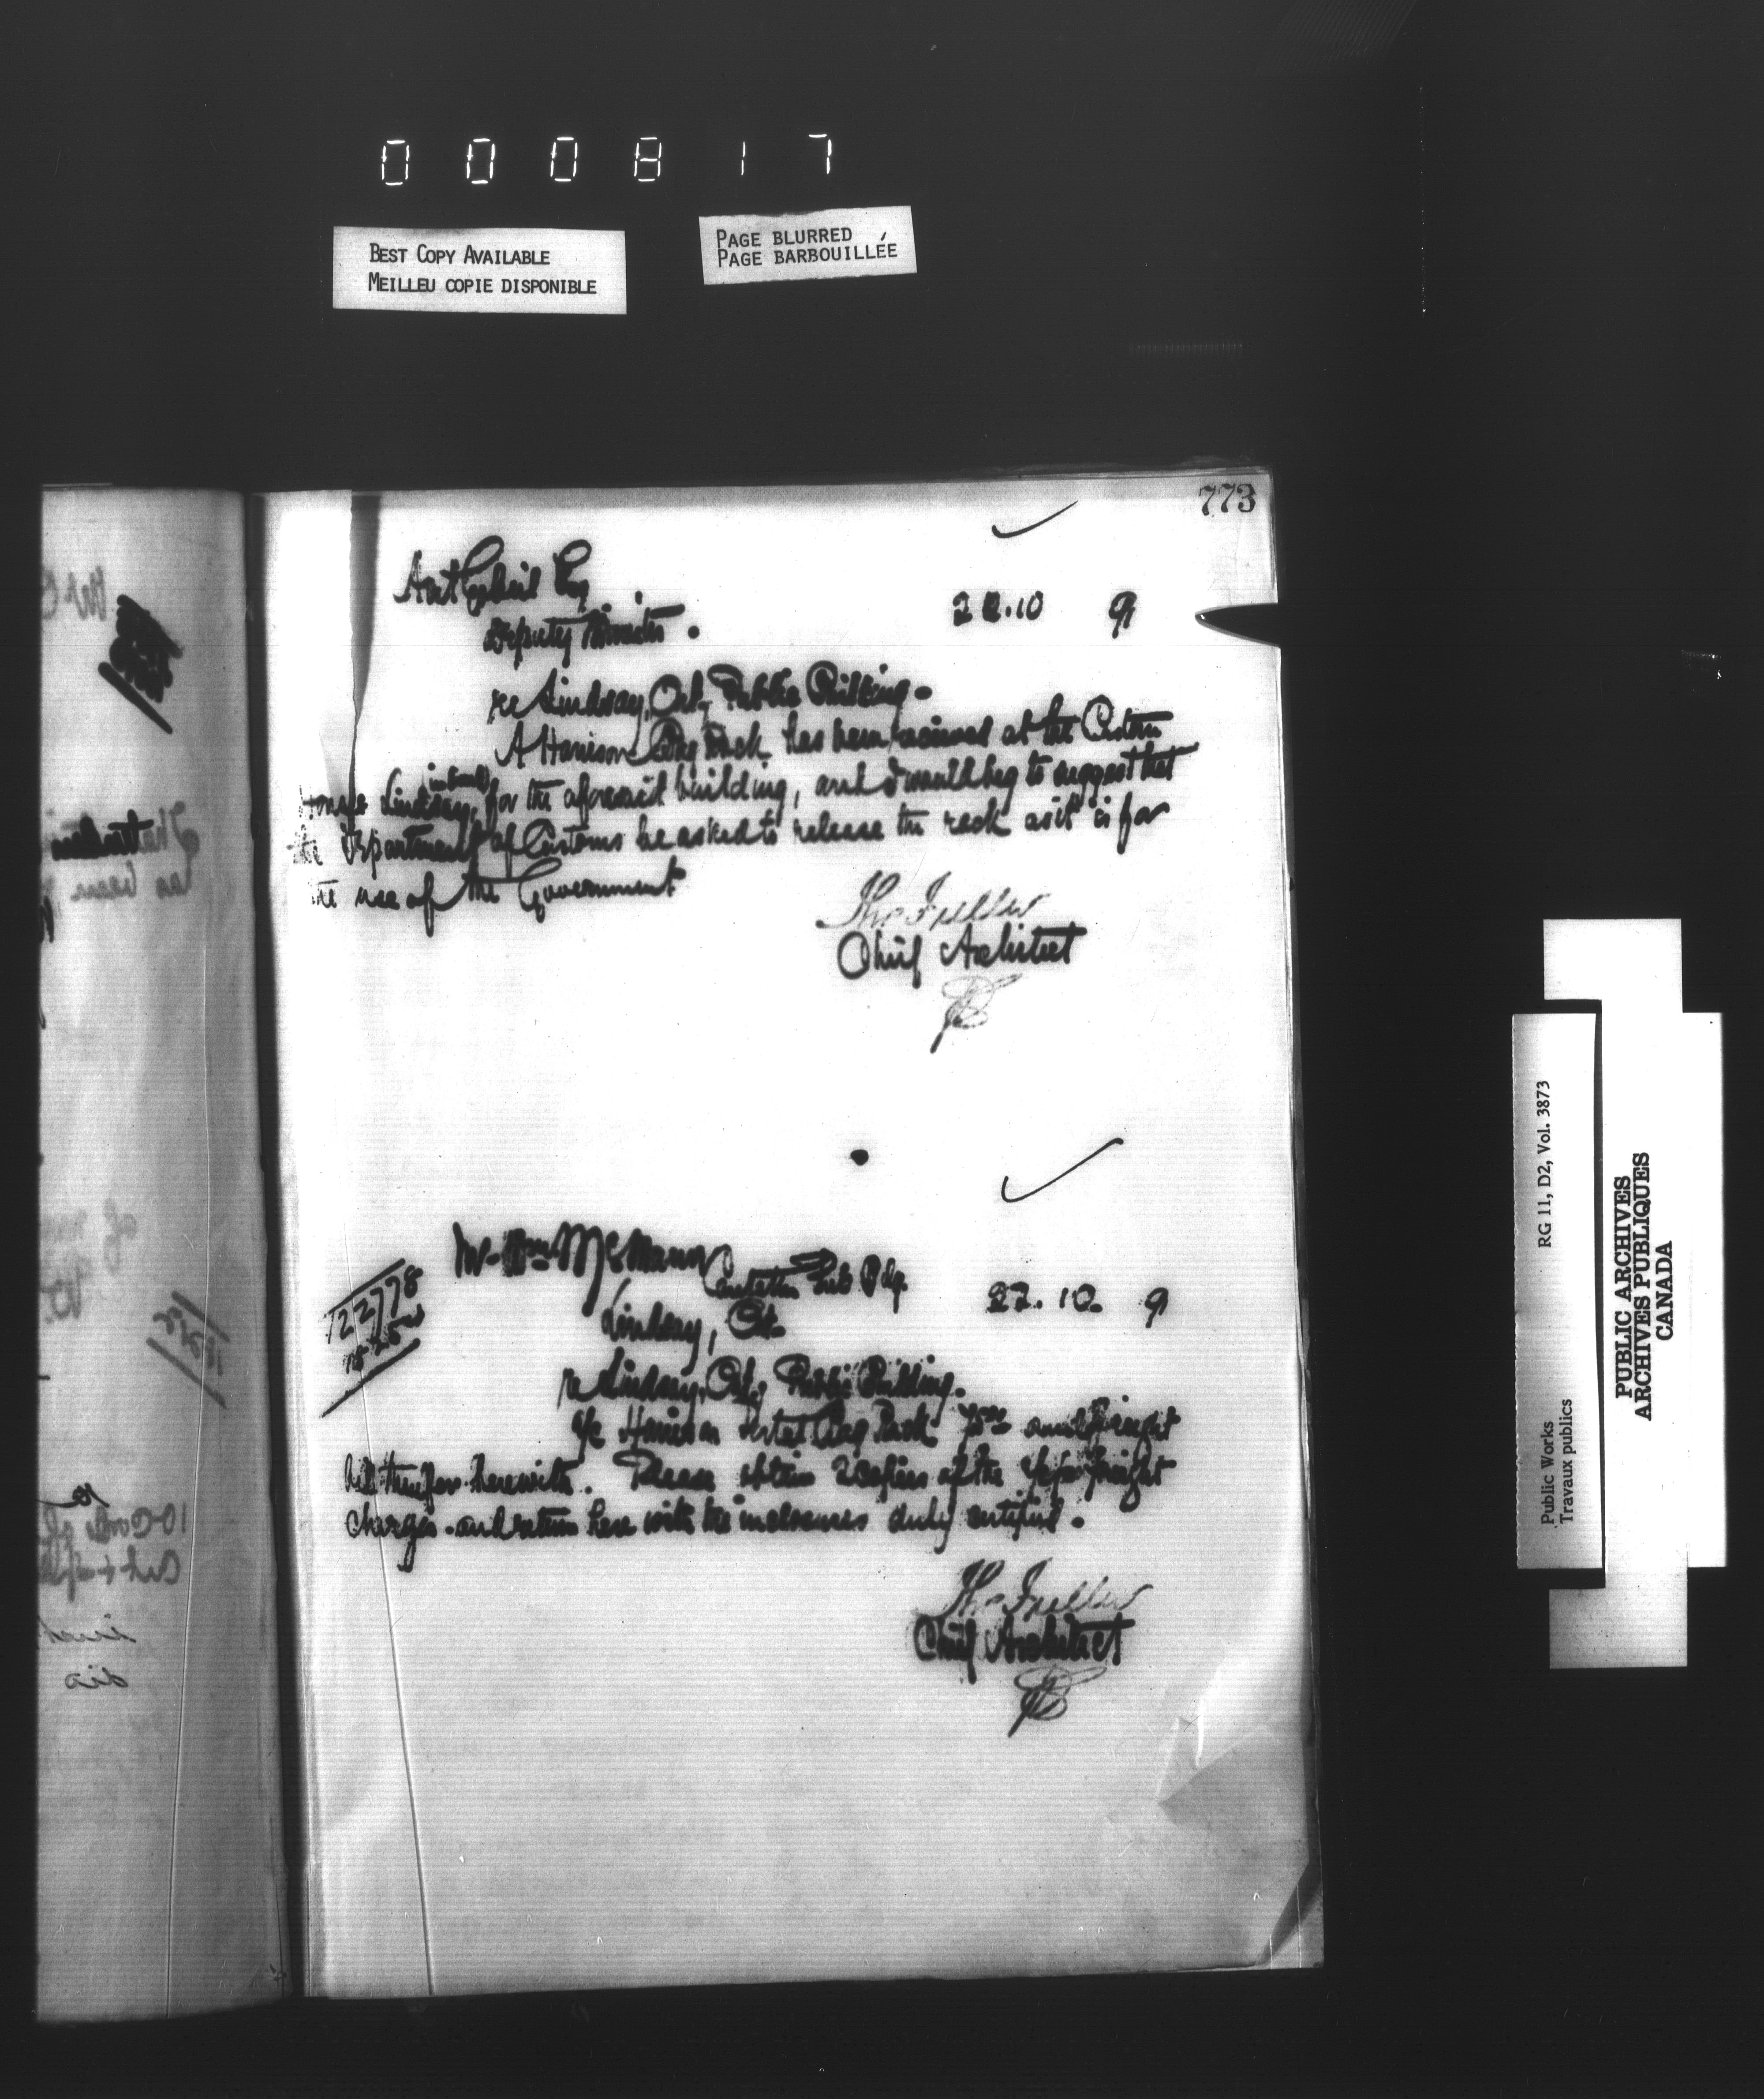 000817
BEST COPY AVAILABLE
MEILLEU COPIE DISPONIBLE
PAGE BLURRED
PAGE BARBOUILLÉE
773
Ant Gobeil Esq
Deputy Minister.
22.10 91
re Lindsay, Ont, Public Building.
A Harrison Bag Rack has been received at the Custom
House Lindsay, for the aforesaid building, and I would beg to suggest that
the Department of Customs be asked to release the rack as it is for
the use of the Government
Tho Fuller
Chief Architect
Mr Wm McMann
Pub Bdg.
Lindsay, Ont.
27.10. 9
122778
re Lindsay, Ont, Public Building.
a/c Harrison Bag Rack and freight
bill therefor herewith. Please obtain 2 copies of the a/c for freight
charges and return here with the inclosures duly certified.
Tho Fuller
Chief Architect
RG 11, D2, Vol. 3873
Public Works
Travaux publics
PUBLIC ARCHIVES
ARCHIVES PUBLIQUES
CANADA